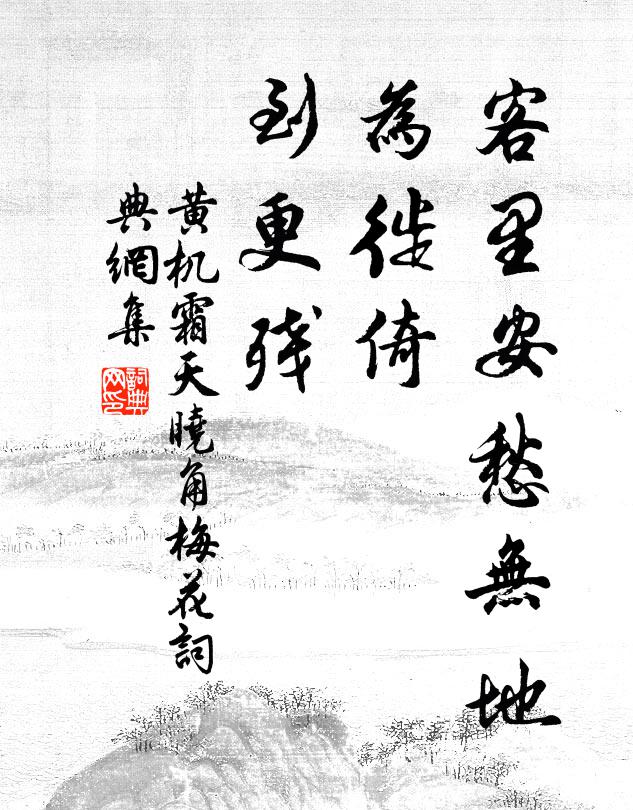 客里安愁無地
為徙倚
到更残
黄机霜天曉角梅花詞
典網集
詞典
网印